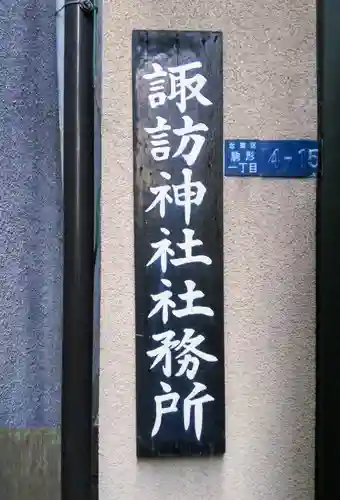 諏訪神社社務所
台東区
駒形
一丁目
4-15